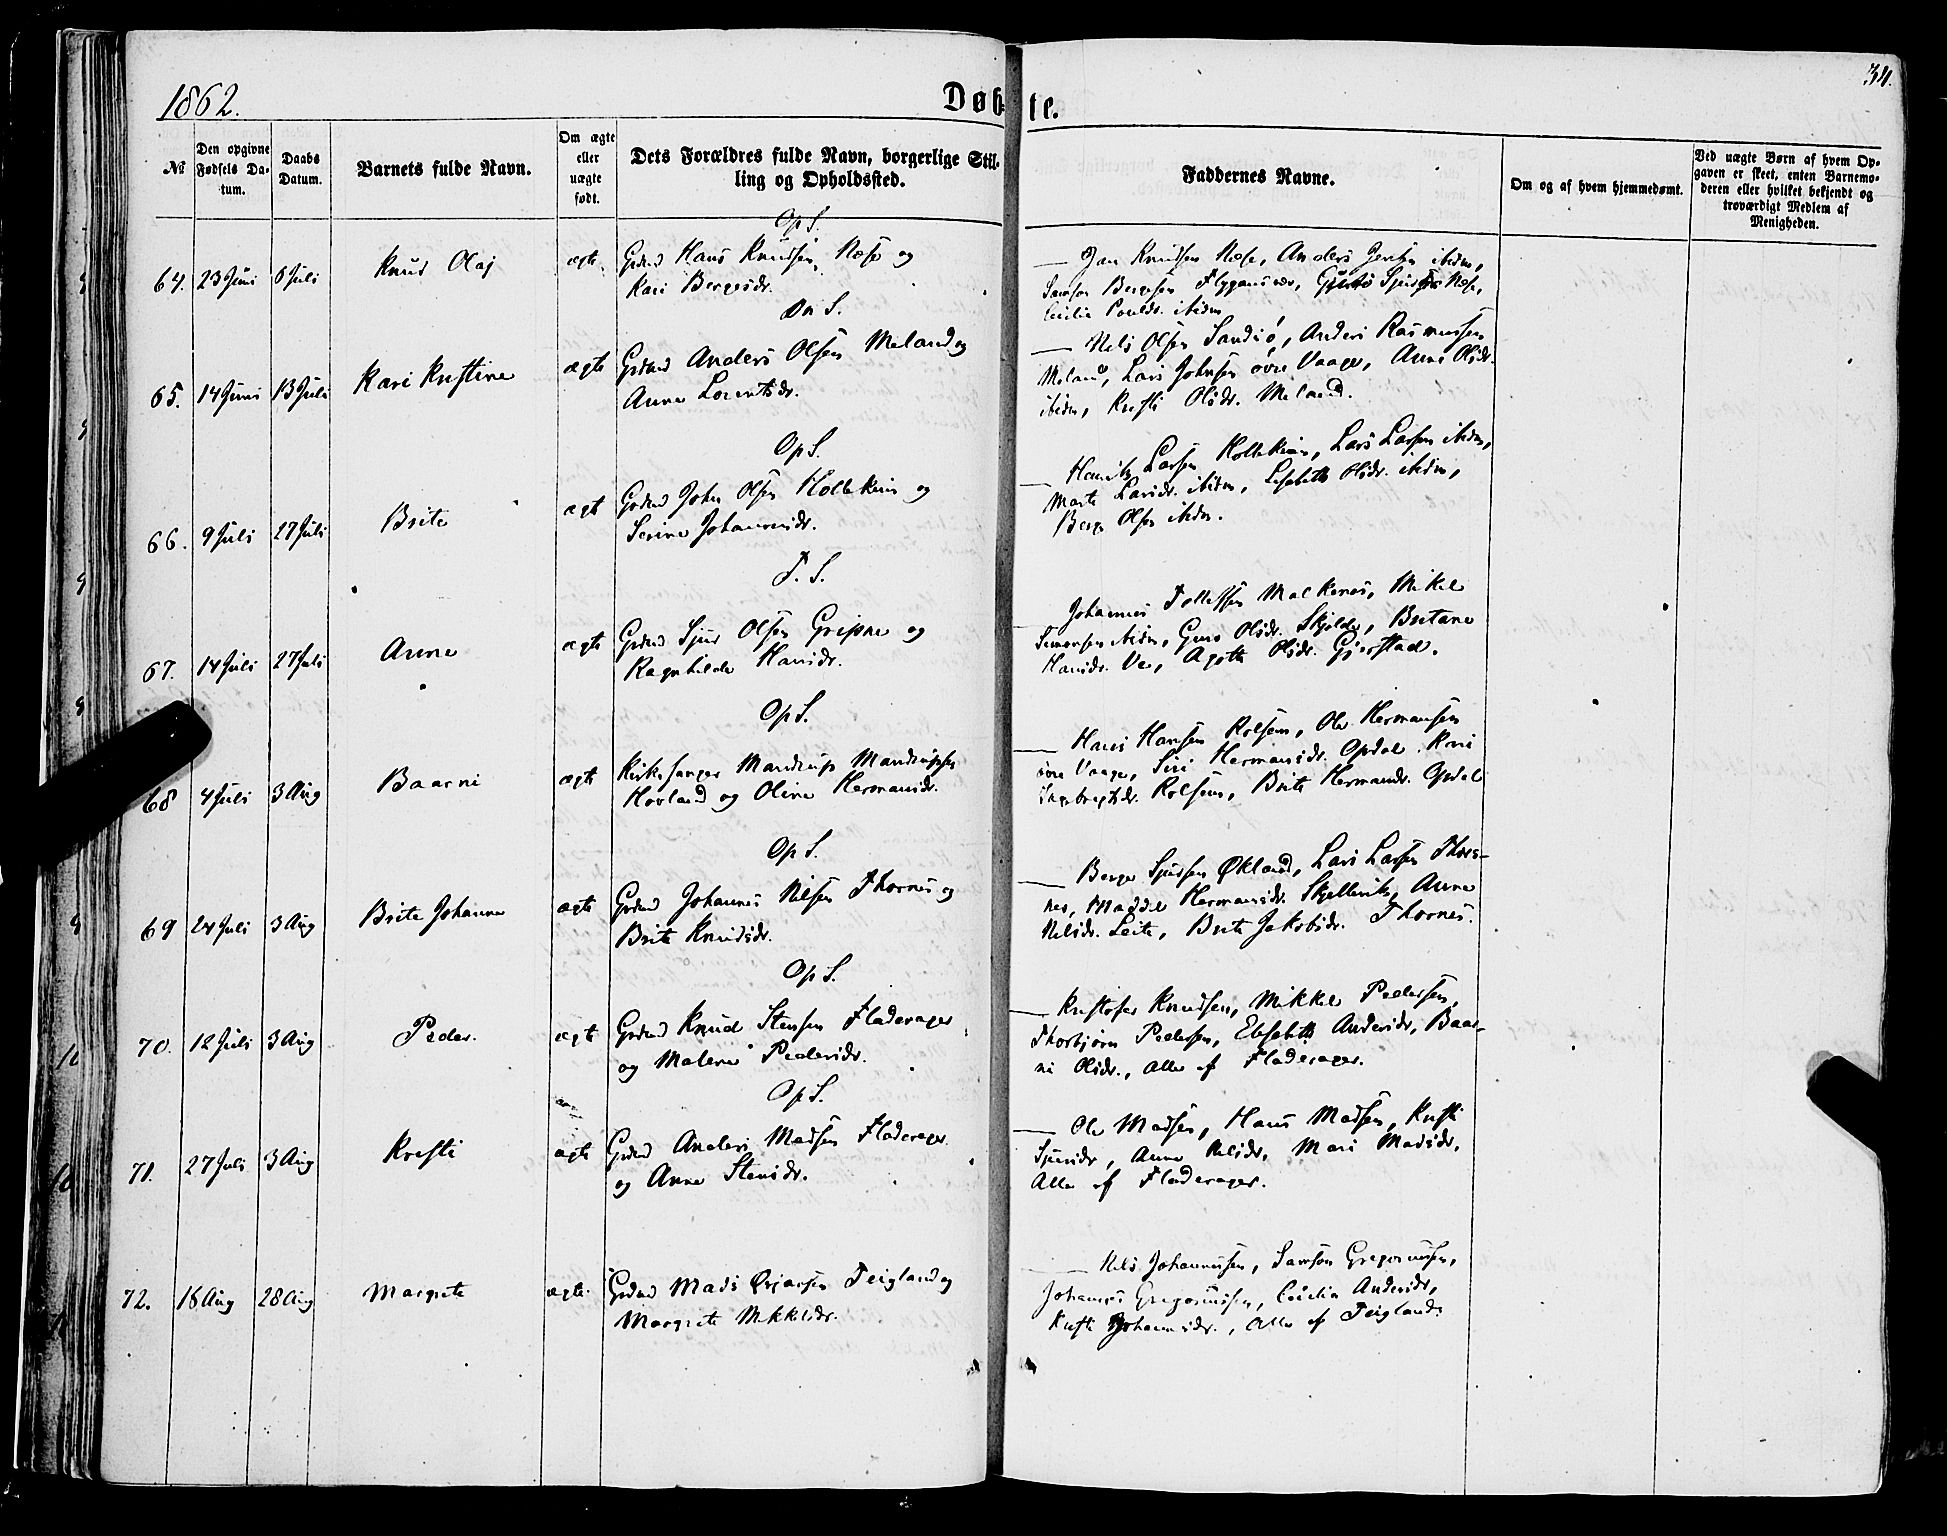 1862.
Døbte.
34.
№
Den opgivne Fødsels Datum.
Daabs Datum.
Barnets fulde Navn.
Om ægte eller uægte født.
Dets Forældres fulde Navn, borgerlige Stilling og Opholdssted.
Faddernes Navne.
Om og af hvem hjemmedøbt.
Ved uægte Børn af hvem Opgaven er skeet, enten Barnemoderen eller hvilket bekjendt og troværdigt Medlem af Menigheden.
Op S.
64. 23 Juni 6 Juli Knud Olaj ægte Grdmd Hans Knudsen Næse og
Kari Bergesdr.
Jan Knudsen Næse, Anders ibidm,
Samson Bergesen Flygansvær, Næse,
Cecilia Poulsdr. ibidm
Do S.
65. 14 Juni 13 Juli Kari Kristine ægte Grdmd Anders Olsen Meland og
Anne Lorentsdr.
Nils Olsen Sandiø, Anders Rasmussen
Meland, Lars Johnsen øvre Vaage, Anne Olsdr.
ibidm, Kristi Olsdr. Meland.
Op S.
66. 9 Juli 27 Juli Brite ægt Grdmd John Olsen Kollekin og
Serine Johannesdr.
Larsen Kollekin, Lars Larsen ibidm,
Marte Larsdr. ibidm, Lisebeth Olsdr. ibidm,
Berge Olsen ibidm.
F. S.
67. 14 Juli 27 Juli Anne ægte Grdmd Sjur Olsen Gripne og
Ragnhilde Hansdr.
Johannes Tollefsen Malkenes, Mikel
Simonsen ibidm, Guro Olsdr. Skjelde, Britane
Hansdr. Ve, Agethe Olsdr. Gjerstad.
Op S.
68 4 Juli 3 Aug Baarni ægte Kirkesanger Mandrup Mandrupsen
Hovland og Oline Hermansdr.
Hans Hansen Rolsem, Ole Hermansen
øvre Vaage, Siri Hermansdr. Opdal, Kari
Ingebregtsdr. Rolsem, Brite Hermansdr. Opdal
Op S.
69 24 Juli 3 Aug Brite Johanne ægte Grdmd Johannes Nilsen Thornes og
Brite Knudsdr.
Berge Sjursen Økland, Lars Larsen Thor-
nes, Maddel Hermansdr. Skjellevik, Anne
Nilsdr. Leite, Brite Jakobsdr. Thornes.
Op S.
70. 12 Juli 3 Aug Peder. ægte Grdmd Knud Stensen Fladerager
og Malene Pedersdr.
Kristofer Knudsen, Mikkel Pedersen,
Thorbjørn Pedersen, Elsebeth Andersdr, Baar-
ni Olsdr., Alle af Fladerager.
Op S.
71. 27 Juli 3 Aug Kristi ægte Grdmd Anders Madsen Fladerager
og Anne Stensdr.
Ole Madsen, Hans Madsen, Kristi
Sjursdr, Anne Nilsdr, Mari Madsdr,
Alle af Fladerager.
72. 16 Aug 28 Aug Margrete ægte Grdmd Mads Ørjansen Teigland og
Margrete Mikkelsdr.
Nils Johannessen, Samson Gregoriussen,
Johannes Gregoriussen, Cecilia Andersdr,
Kristi Johannesdr., Alle af Teigland